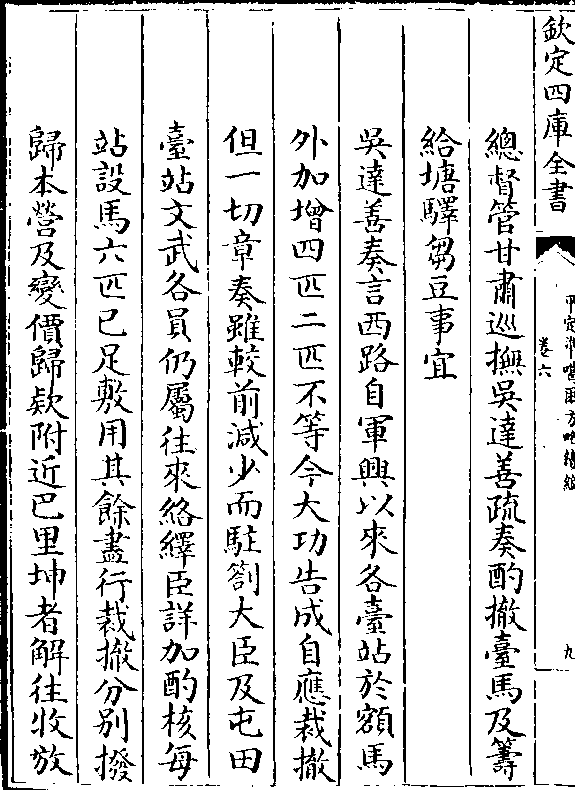 欽定四庫全書
平定準噶爾方略續編
卷六
九
總督管甘肅巡撫吳達善疏奏酌撤臺馬及籌
給塘驛芻豆事宜
吳達善奏言西路自軍興以來各臺站於額馬
外加增四匹二匹不等今大功告成自應裁撤
但一切章奏雖較前減少而駐劄大臣及屯田
臺站文武各員仍屬往來絡繹臣詳加酌核每
站設馬六匹已足敷用其餘盡行裁撤分别撥
歸本營及變價歸款附近巴里坤者解往收放